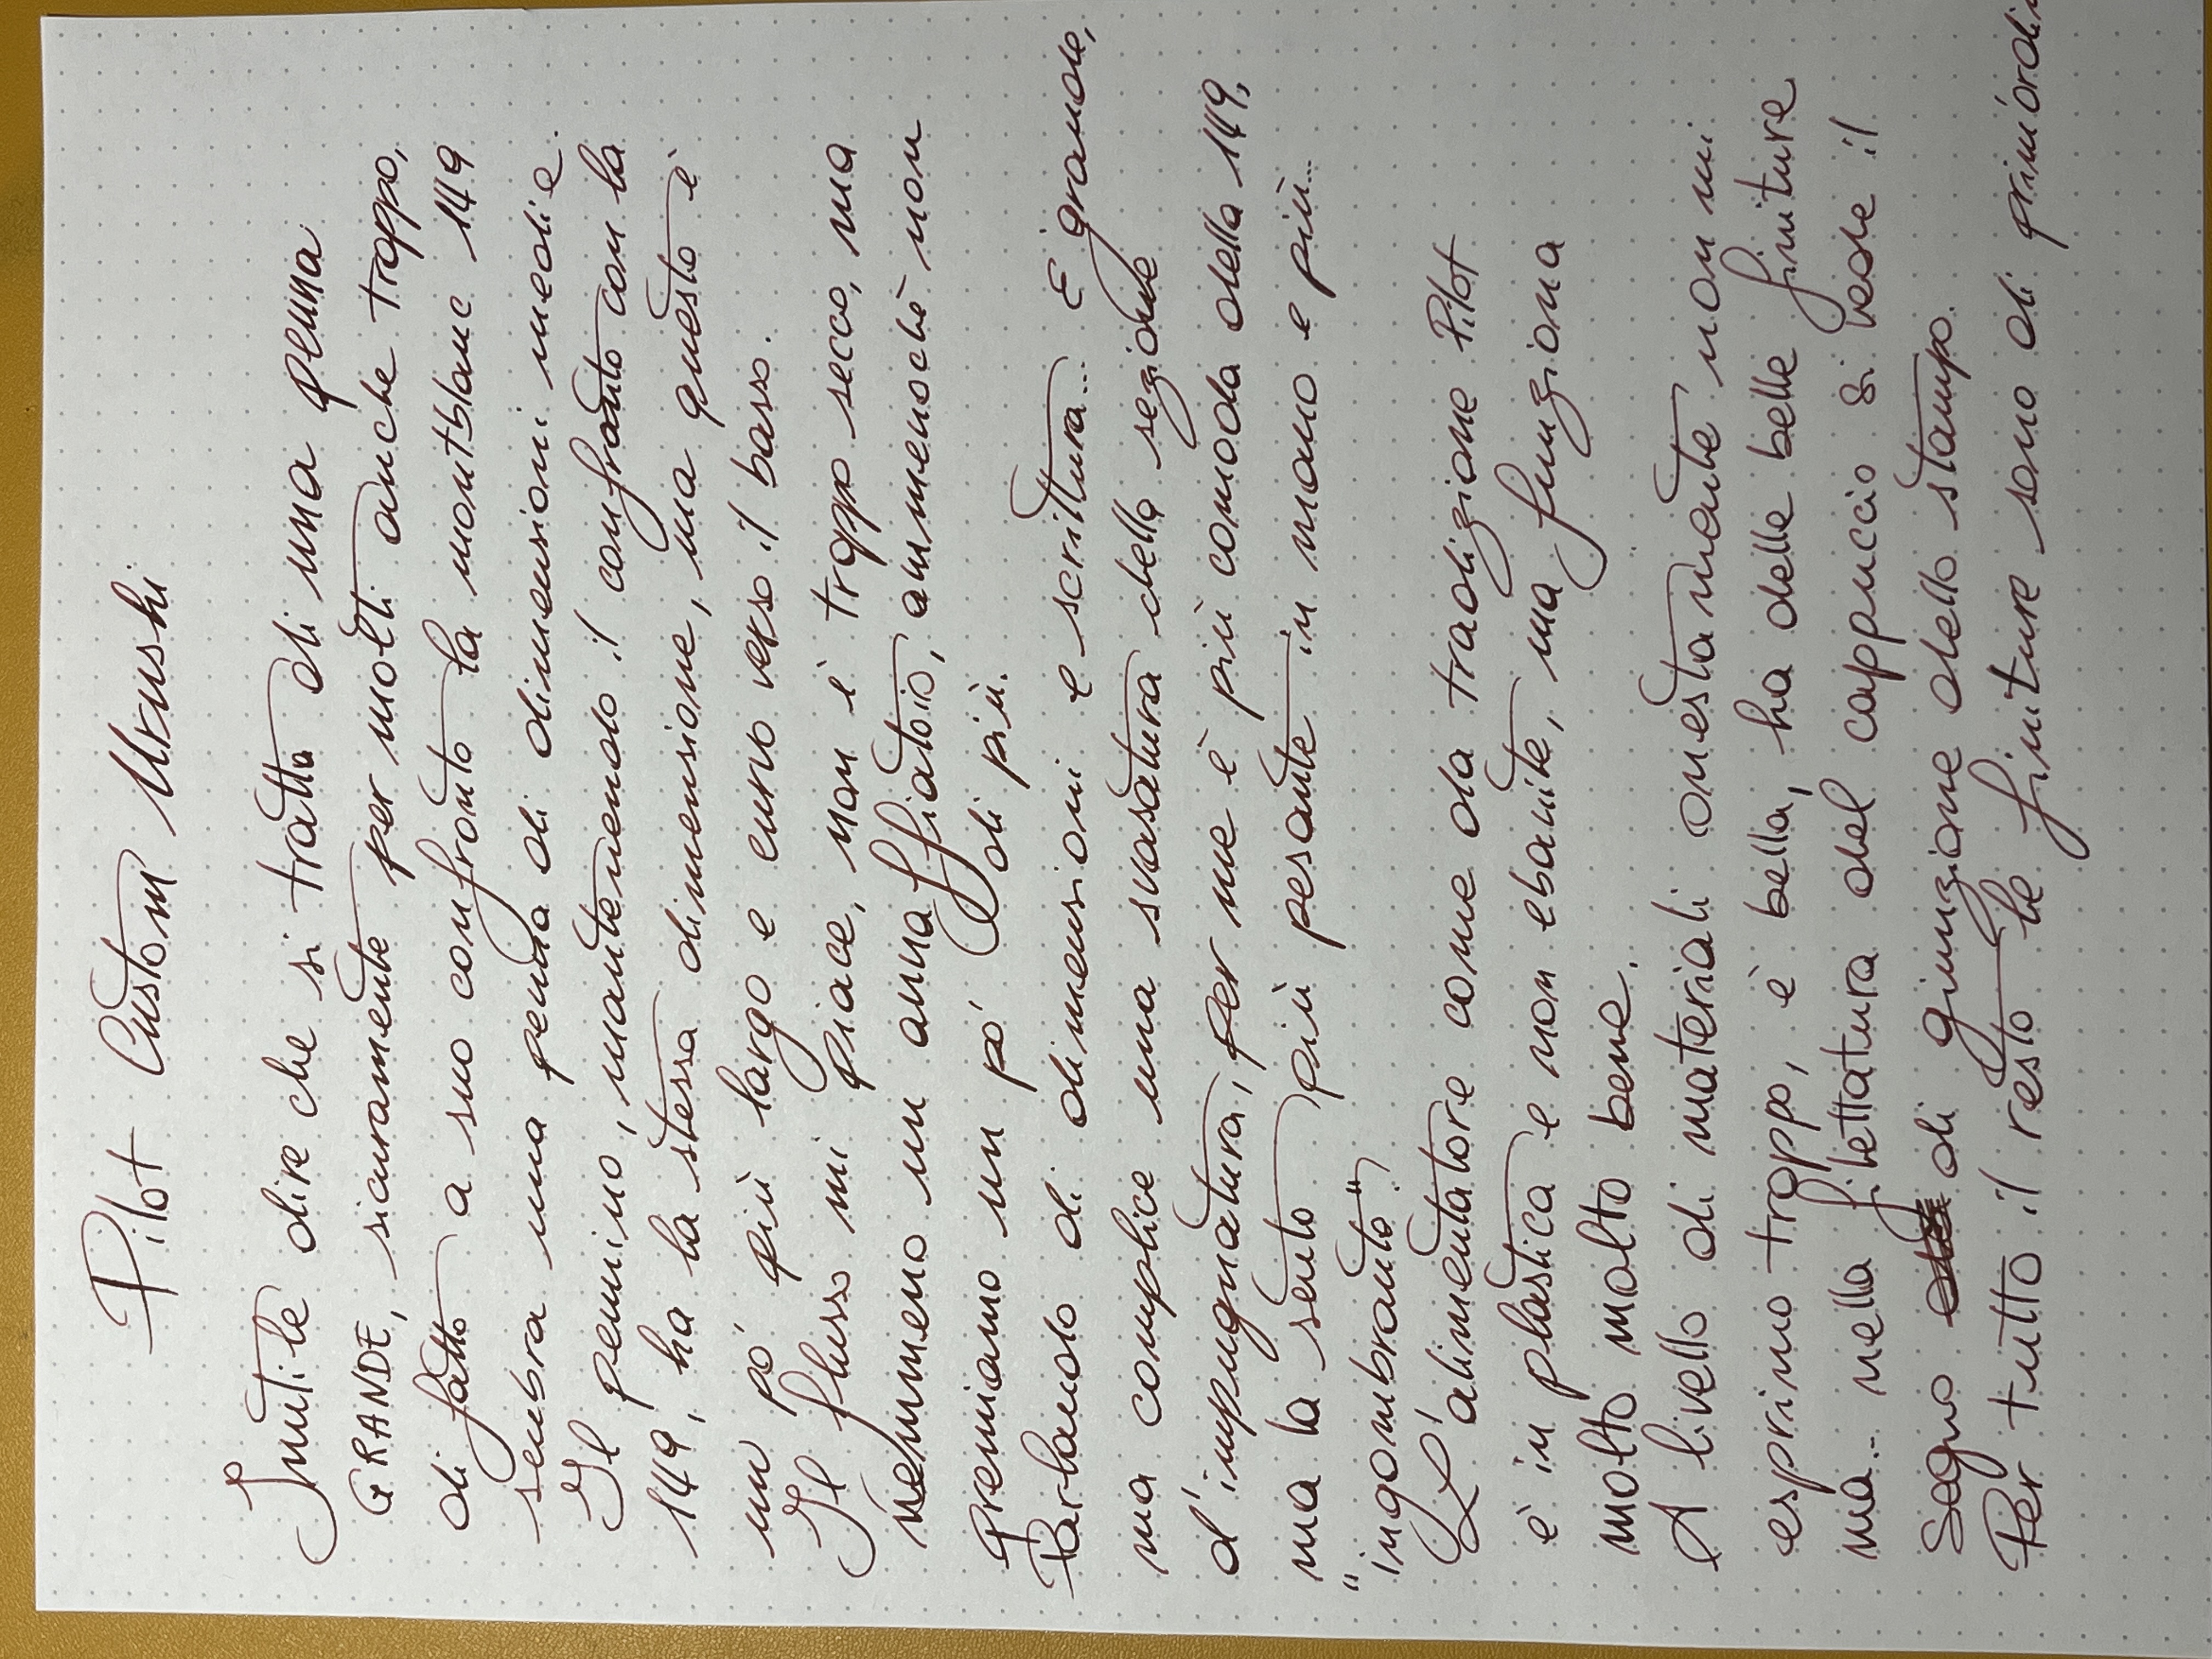 Pilot Custom Urushi
Inutile dire che si tratta di una penna
GRANDE, sicuramente per molti anche troppo,
di fatto a suo confronto la montblanc 149
sembra una penna di dimensioni medie.
Il pennino, mantenendo il confronto con la
149, ha la stessa dimensione, ma questo è
un pò più largo e curvo verso il basso.
Il flusso mi piace, non è troppo secco, ma
nemmeno un annaffiatoio, ammenochè non
premiamo un pò di più.
Parlando di dimensioni e scrittura... È grande,
ma complice una svasatura della sezione
d'impugnatura, per me è più comoda della 149,
ma la sento più pesante in mano e più...
"ingombrante".
L'alimentatore come da tradizione Pilot
è in plastica e non ebanite, ma funziona
molto molto bene.
A livello di materiali onestamente non mi
esprimo troppo, è bella, ha delle belle finiture
ma... nella filettatura del cappuccio si vede il
segno di giunzione dello stampo.
Per tutto il resto le finiture sono di